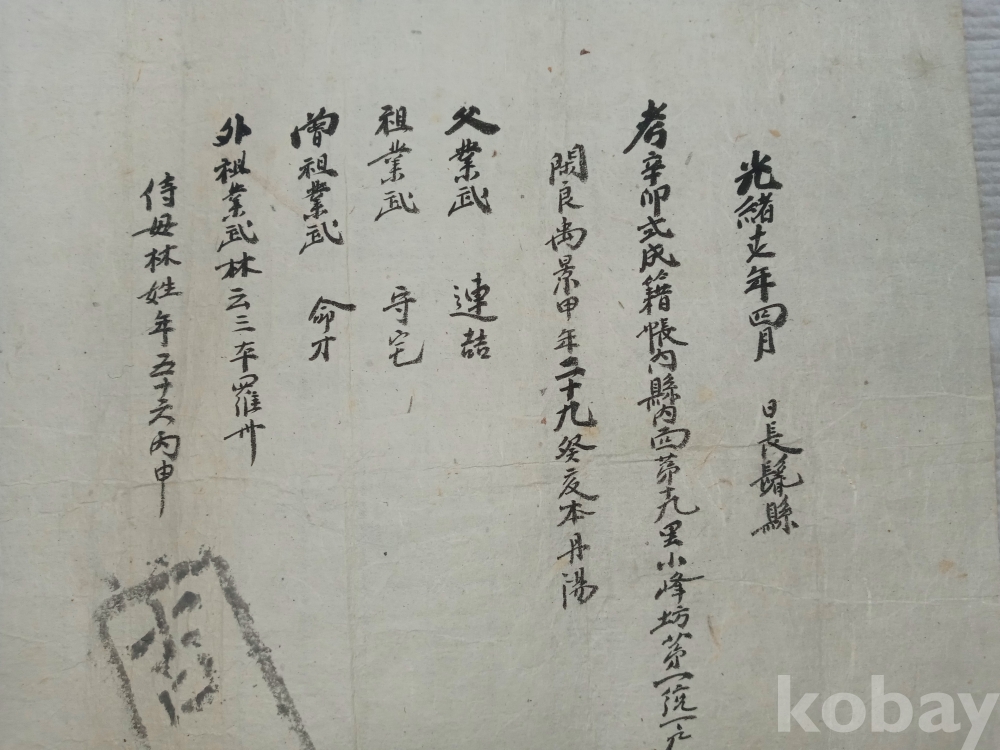 光緒十七年四月 日長鬐縣
考辛卯式成籍帳內縣內面第十九里小峰坊第一統一戶
閑良禹景甲年二十九癸亥本丹陽
父業武 連喆
祖業武 守宅
曾祖業武 命才
外祖業武林云三本羅州
侍母林姓年五十六丙申
kobay